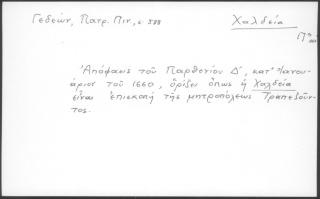 Γεδεών, Πατρ. Πιν., σ. 588
Χαλδεία
Ἀπόφασις τοῦ Παρθενίου Δ΄, κατ' Ἰανου-
άριον τοῦ 1660, ὁρίζει ὅπως ἡ Χαλδεία
εἶναι ἐπισκοπή τῆς μητροπόλεως Τραπεζοῦν-
τος.